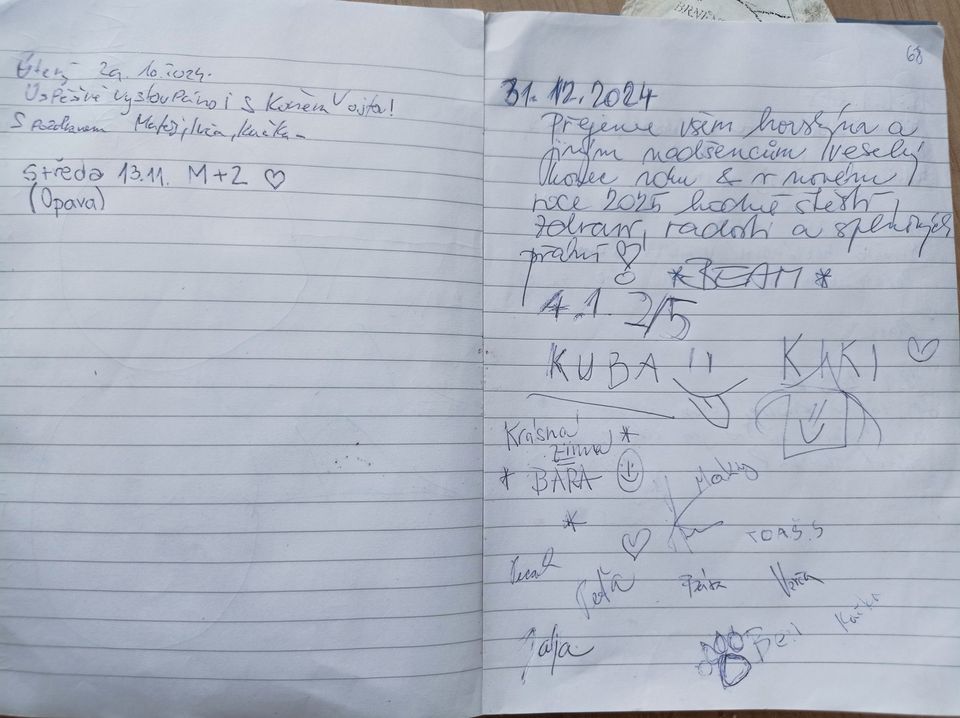 Úterý 29.10.2024.
Úspěšně vystoupáno i s Koněm Vojta!
S pozdravem Matěj, Kačka
Středa 13.11. M+Z ♡
(Opava)
BRNĚN
68
31.12.2024
Přejeme všem horským a
jiným nadšencům veselý
konec roku & v novém
roce 2025 hodně štěstí,
zdraví, radosti a splněných
přání ♡
*BEAM*
4.1. 2/5
KUBA KIKI ♡
Krásná
zima *
* BÁRA ☺
*
Maky
♡ TOMÁŠ.S
Peťa Verča
Jája Ben Kačka